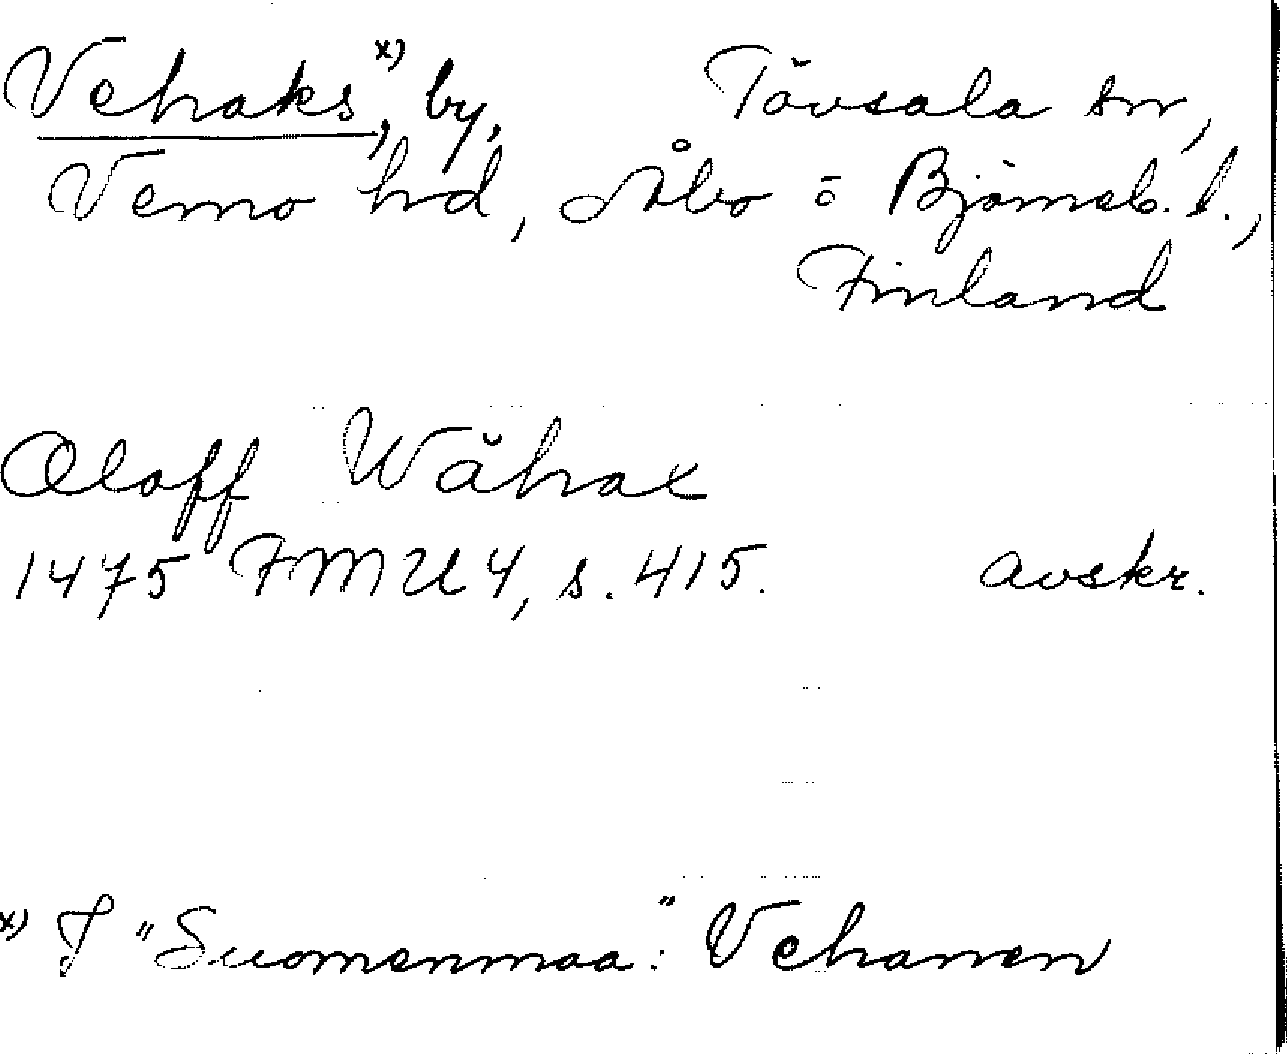 Vehaks,ˣ⁾ by, Tövsala sn,
Vemo hd, Åbo o Björneb. l.,
Finland
Oloff Wähax
1475 FMU 4, s. 415. avskr.
x) I "Suomenmaa": Vehanen